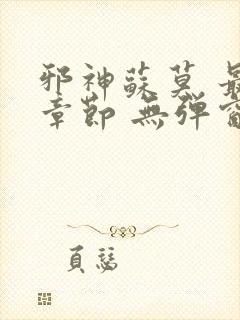 邪神蘇莫 最
章節 無彈窗
頁慈